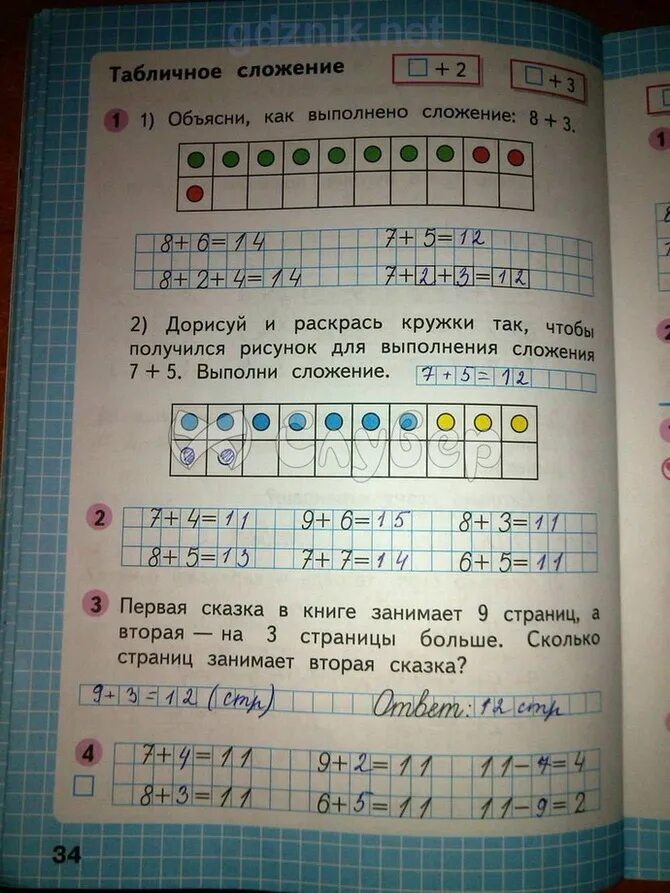 gdznik.net
Табличное сложение □ + 2 □ + 3
1 1) Объясни, как выполнено сложение: 8 + 3.
8+6=14 7+5=12
8+2+4=14 7+2+3=12
2) Дорисуй и раскрась кружки так, чтобы
получился рисунок для выполнения сложения
7 + 5. Выполни сложение. 7+5=12
Слувер
2 7+4=11 9+6=15 8+3=11
8+5=13 7+7=14 6+5=11
3 Первая сказка в книге занимает 9 страниц, а
вторая — на 3 страницы больше. Сколько
страниц занимает вторая сказка?
9+3=12 (стр) Ответ: 12 стр
4 7+4=11 9+2=11 11-7=4
8+3=11 6+5=11 11-9=2
34